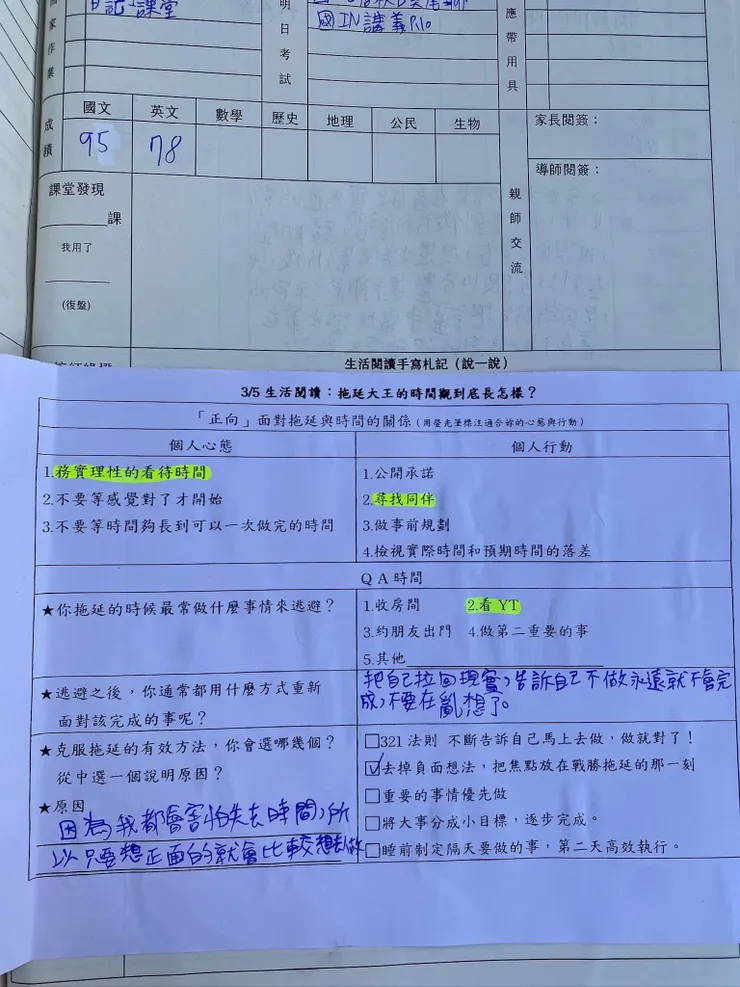 家作業
日記、課堂
明日考試
國IN講義P10
應帶用具
成績
國文 英文 數學 歷史 地理 公民 生物
95 78
親師交流
家長閱簽：
導師閱簽：
課堂發現
課
我用了
(復盤)
生活閱讀手寫札記（說一說）
3/5 生活閱讀：拖延大王的時間觀到底長怎樣？
「正向」面對拖延與時間的關係（用螢光筆標注適合妳的心態與行動）
個人心態 個人行動
1.務實理性的看待時間
2.不要等感覺對了才開始
3.不要等時間夠長到可以一次做完的時間
1.公開承諾
2.尋找同伴
3.做事前規劃
4.檢視實際時間和預期時間的落差
QA 時間
★你拖延的時候最常做什麼事情來逃避？
1.收房間 2.看 YT
3.約朋友出門 4.做第二重要的事
5.其他
★逃避之後，你通常都用什麼方式重新
面對該完成的事呢？
把自己拉回現實，告訴自己不做永遠就不會完
成，不要在亂想了。
★克服拖延的有效方法，你會選哪幾個？
從中選一個說明原因？
★原因
因為我都會害怕失去時間，所
以只要想正面的就會比較想去做
□321 法則 不斷告訴自己馬上去做，做就對了！
☑去掉負面想法，把焦點放在戰勝拖延的那一刻
□重要的事情優先做
□將大事分成小目標，逐步完成。
□睡前制定隔天要做的事，第二天高效執行。